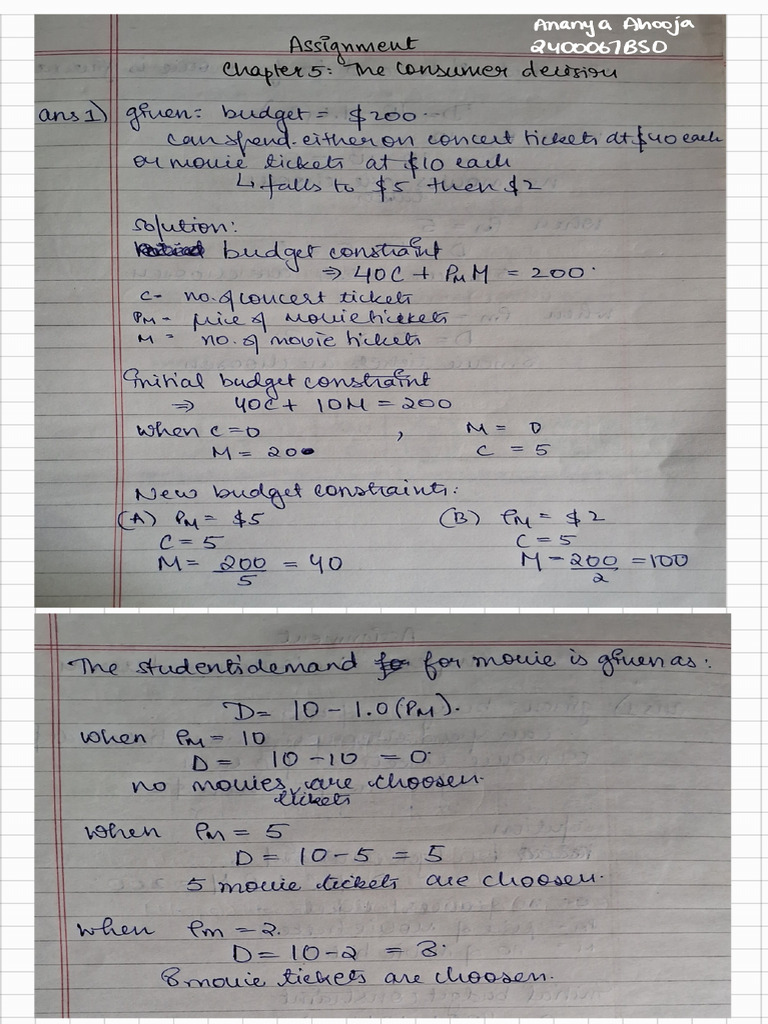 Ananya Ahooja
2400067BSO
Assignment
Chapter 5: The Consumer decision
ans 1) given: budget = $200.
can spend either on concert tickets at $40 each
or movie tickets at $10 each
↳ falls to $5 then $2
solution:
budget constraint
⇒ 40C + PM M = 200.
C - no. of concert tickets
PM - price of movie tickets
M = no. of movie tickets
Initial budget constraint
⇒ 40C + 10M = 200
when C = 0 , M = 0
M = 20 C = 5
New budget constraints:
(A) PM = $5 (B) PM = $2
C = 5 C = 5
M = 200/5 = 40 M = 200/2 = 100
The student's demand for movie is given as:
D = 10 - 1.0 (PM).
when PM = 10
D = 10 - 10 = 0.
no movies tickets are choosen.
when PM = 5
D = 10 - 5 = 5
5 movie tickets are choosen.
when PM = 2.
D = 10 - 2 = 8.
8 movie tickets are choosen.